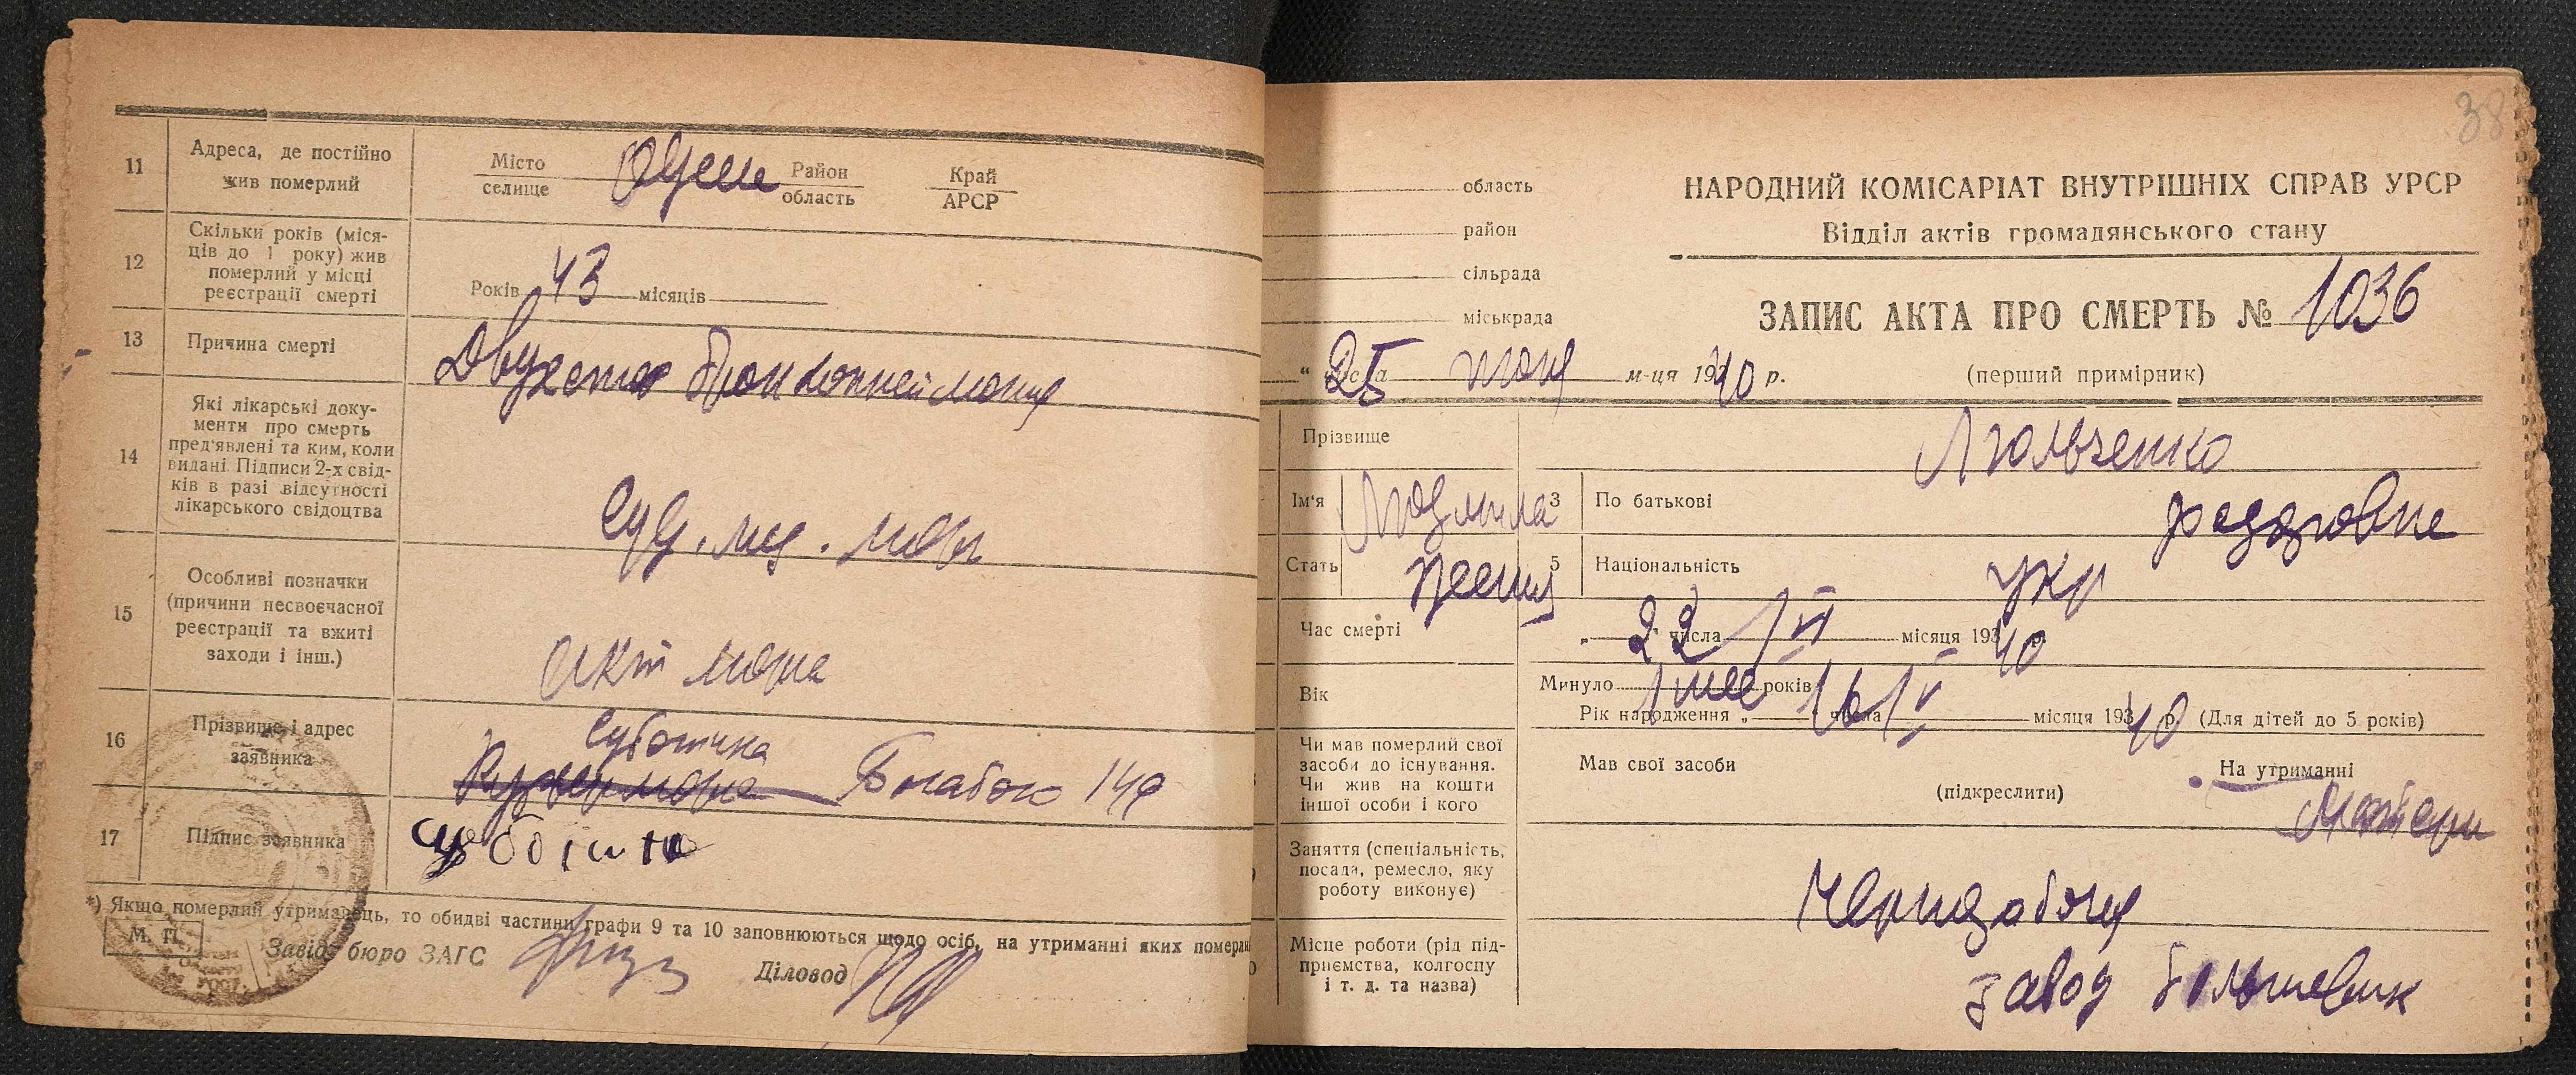 11
Адреса, де постійно
жив померлий
Місто
селище
Одесса
Район
область
Край
АРСР
12
Скільки років (міся-
ців до 1 року) жив
померлий у місці
реєстрації смерті
Років 43 місяців
13
Причина смерті
Двухстор бронхопнеймония
14
Які лікарські доку-
менти про смерть
пред'явлені та ким, коли
видані. Підписи 2-х свід-
ків в разі відсутності
лікарського свідоцтва
Суд. мед.
15
Особливі позначки
(причини несвоєчасної
реєстрації та вжиті
заходи і інш.)
акт
16
Прізвище і адрес
заявника
Суботина
149
17
Підпис заявника
*) Якщо померлий утриманець, то обидві частини графи 9 та 10 заповнюються щодо осіб, на утриманні яких
М. П.
Завід. бюро ЗАГС
Діловод
38
область
район
сільрада
міськрада
НАРОДНИЙ КОМІСАРІАТ ВНУТРІШНІХ СПРАВ УРСР
Відділ актів громадянського стану
ЗАПИС АКТА ПРО СМЕРТЬ № 1036
" 25 числа июня м-ця 1940 р.
(перший примірник)
Прізвище
Ім'я Людмила
3 По батькові
Стать
5 Національність укр
Час смерті
" 22 числа / VI місяця 193 40 р.
Вік
Минуло 1 мес років
Рік народження " 16 " числа / V місяця 193 40 р. (Для дітей до 5 років)
Чи мав померлий свої
засоби до існування.
Чи жив на кошти
іншої особи і кого
Мав свої засоби
(підкреслити)
На утриманні
Матери
Заняття (спеціальність,
посада, ремесло, яку
роботу виконує)
Чернорабочая
Місце роботи (рід під-
приємства, колгоспу
і т. д. та назва)
завод Большевик